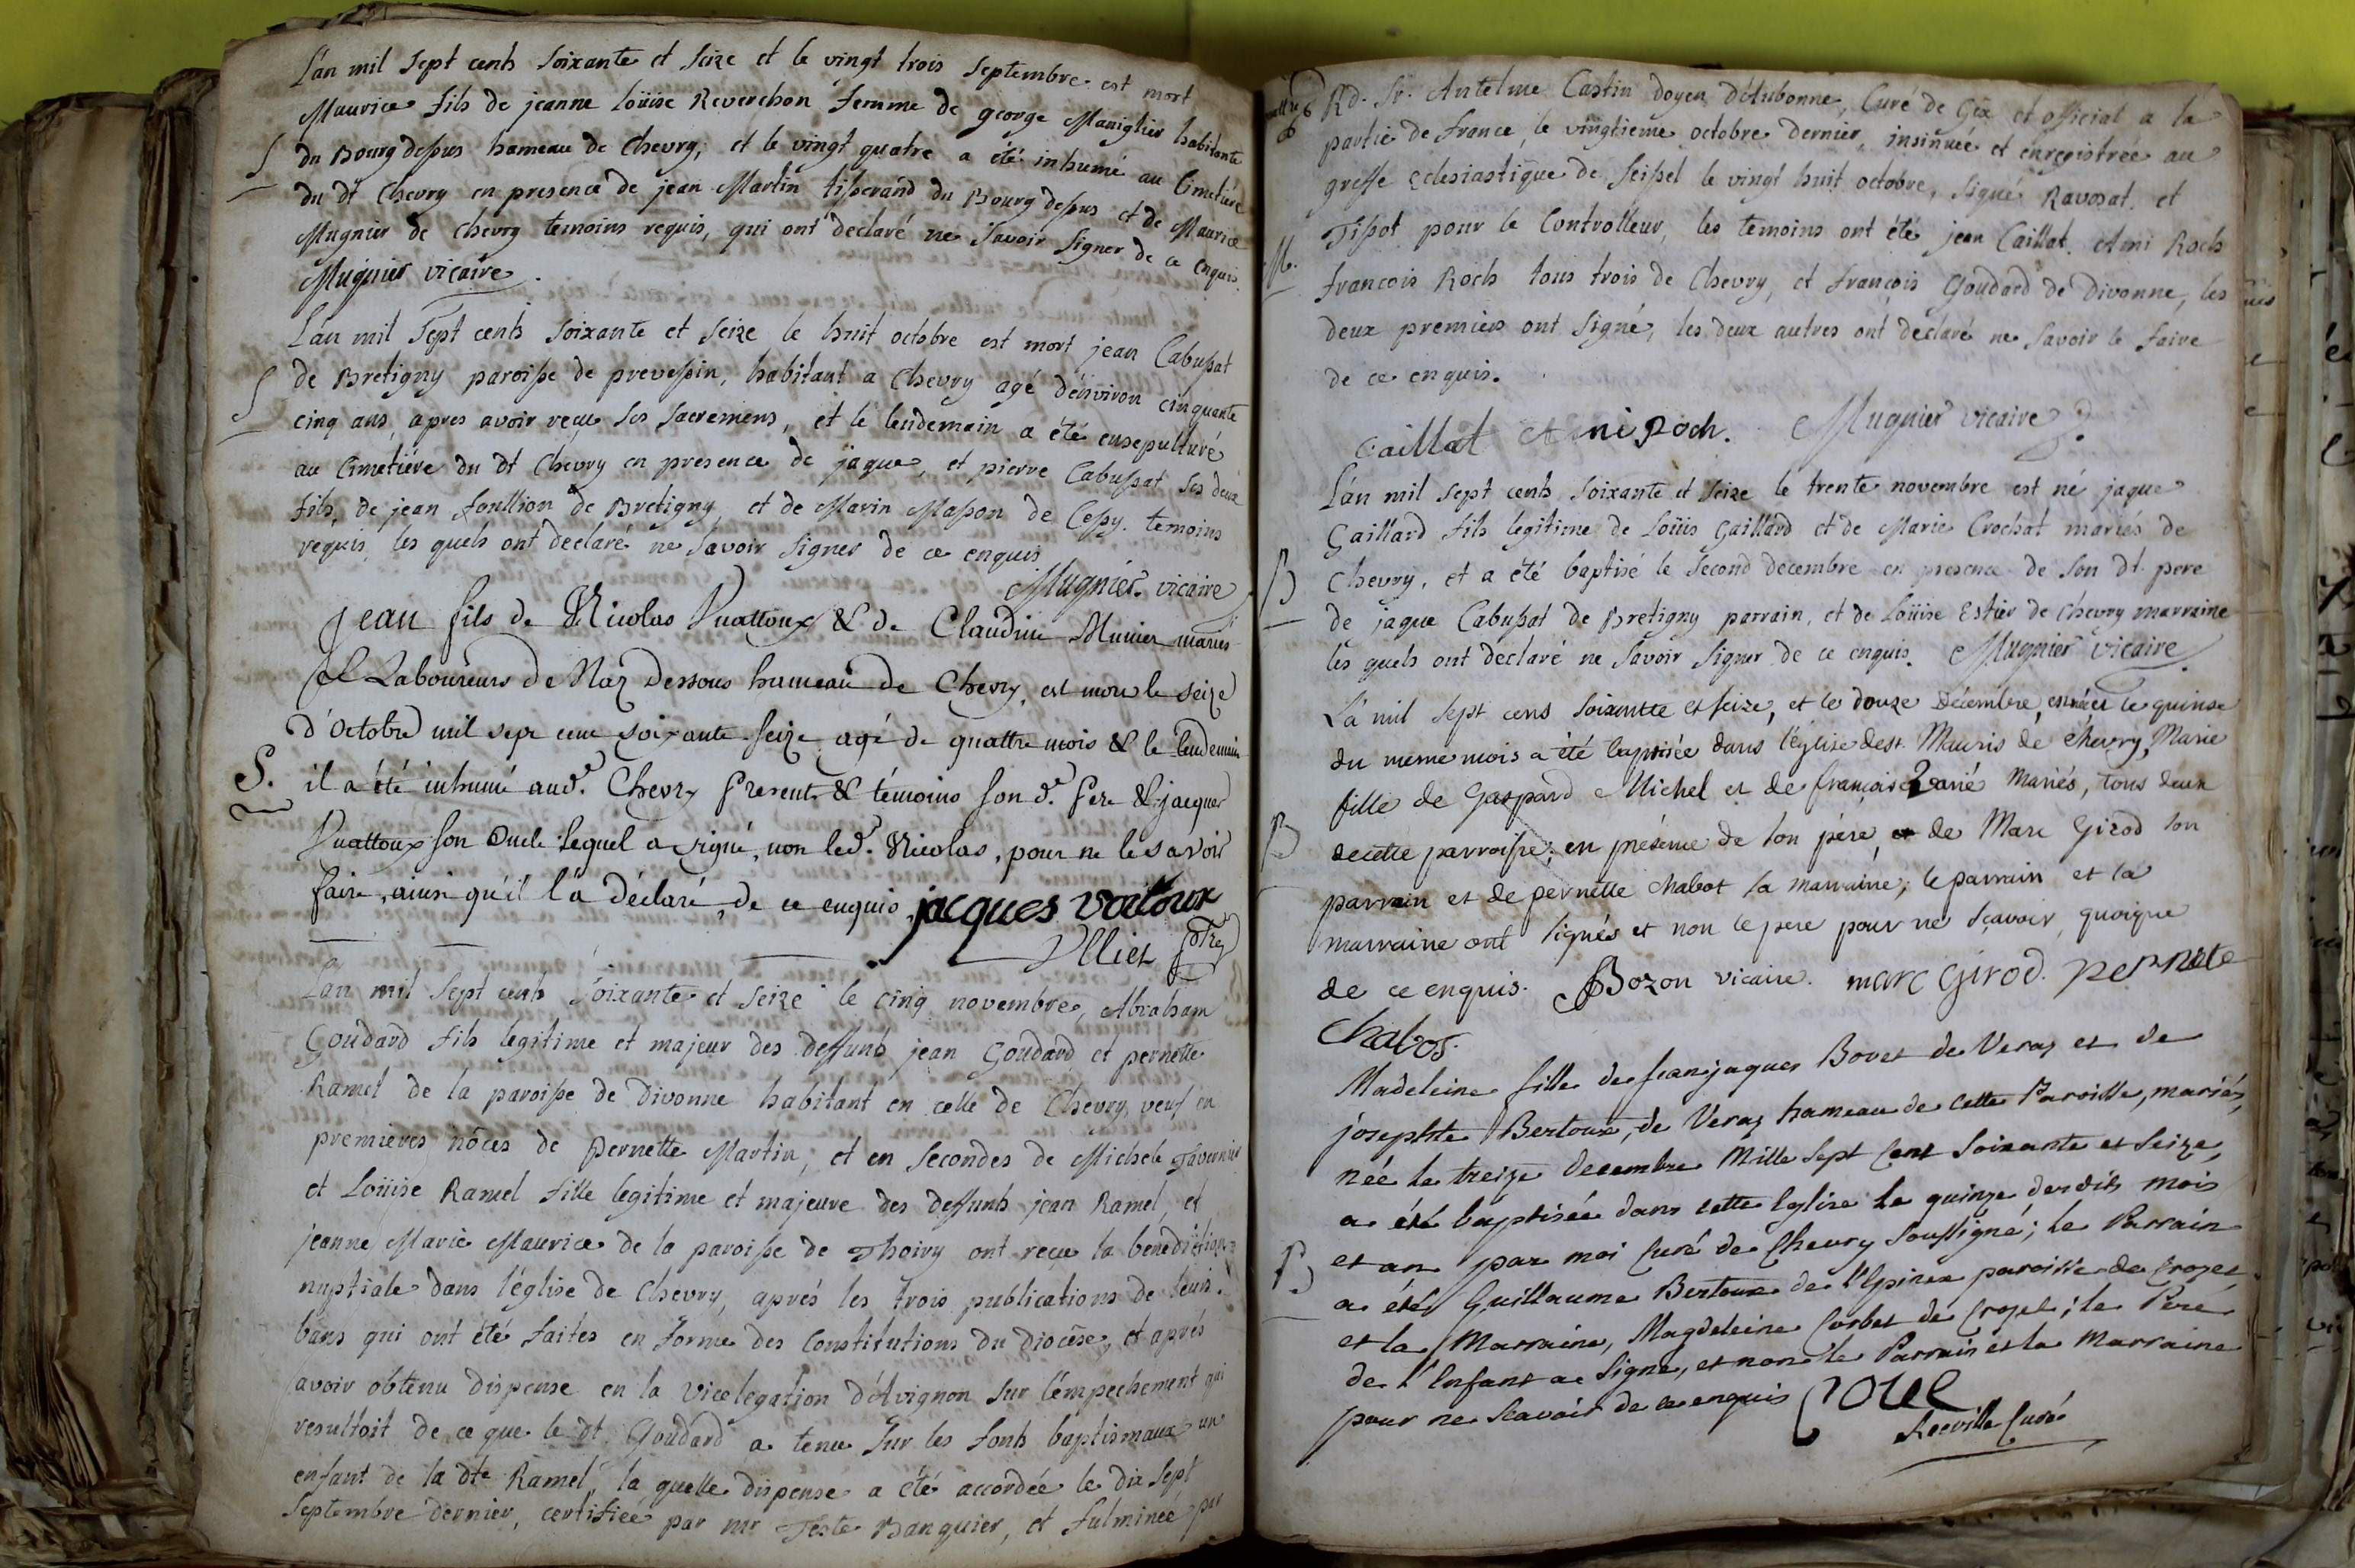 L'an mil sept cents soixante et seize et le vingt trois septembre est mort
Maurice fils de jeanne Loüise Reverchon femme de george Maniglier habitante
S du Bourg dessus hameau de Chevry, et le vingt quatre a été inhumé au Cimetiére
du dt Chevry en presence de jean Martin tisserand du Bourg dessus et de Maurice
Mugnier de chevry temoins requis, qui ont declaré ne savoir signer de ce enquis.
Mugnier vicaire.
L'an mil sept cents soixante et seize le huit octobre est mort jean Cabussat
S de Bretigny paroisse de prevessin, habitant a Chevry agé d'environ cinquante
cinq ans, apres avoir reçu ses sacremens, et le lendemain a été ensepulturé
au Cimetiére du dt Chevry en presence de jaque, et pierre Cabussat ses deux
fils, de jean fonllion de Bretigny, et de Marin Masson de Cessy. temoins
requis, les quels ont declaré ne savoir signer de ce enquis
Mugnier. vicaire
Jean fils de Nicolas Vuattoux & de Claudine Munier mariés
& Laboureurs de Naz dessous hameau de Chevry, est mort le seize
d'octobre mil sept cent soixante seize agé de quattre mois & le lendemain
S. il a été inhumé aud. Chevry presents & témoins son d. pere & jacques
Vuattoux son oncle lequel a signé, non led. Nicolas, pour ne le savoir
faire, ainsi qu'il l'a déclaré, de ce enquis. jacques vattoux
Ulliet ptre
L'an mil sept cents soixante et seize le cinq novembre, Abraham
Goudard fils legitime et majeur des deffunts jean Goudard et pernette
Ramel de la paroisse de Divonne habitant en celle de Chevry, veuf en
premieres nôces de pernette Martin, et en secondes de Michele Tavernier
et Loüise Ramel fille legitime et majeure des deffunts jean Ramel, et
jeanne Marie Maurice de la paroisse de Thoiry ont reçu la benediction
nuptiale dans l'église de Chevry, aprés les trois publications de leurs
bans qui ont été faites en forme des Constitutions du diocêse, et aprés
avoir obtenu dispense en la Vicelegation d'Avignon sur l'empechement qui
resultoit de ce que le dt Goudard a tenu sur les fonts baptismaux un
enfant de la dte Ramel, la quelle dispense a été accordée le dix sept
septembre dernier, certifiée par mr Teste Banquier, et fulminée par
Rd. Sr. Antelme Castin doyen d'Aubonne, Curé de Gex et official a la
partie de france, le vingtieme octobre dernier, insinuée et enregistrée au
greffe eclesiastique de Seissel le vingt huit octobre, signé Ravosat. et
M. Tissot pour le Controlleur, les temoins ont été jean Caillat. Ami Roch
francois Roch tous trois de Chevry, et françois Goudard de Divonne, les
deux premiers ont signé, les deux autres ont declaré ne savoir le faire
de ce enquis.
Caillat Ami Roch. Mugnier vicaire
L'an mil sept cents soixante et seize le trente novembre est né jaque
Gaillard fils legitime de Loüis Gaillard et de Marie Crochat mariés de
B Chevry, et a été baptisé le second decembre en presence de son dt. pere
de jaque Cabussat de Bretigny parrain, et de Loüise Estier de Chevry marraine
les quels ont declaré ne savoir signer de ce enquis. Mugnier vicaire
L'a mil sept cens soixantte et seize, et le douze Décembre, est née et le quinse
du meme mois a été baptisée dans l'église de st. Mauris de chevry, Marie
fille de Gaspard Michel et de françoise mariés, tous deux
B de cette parroisse; en présence de son père, et de Marc Girod son
parrain et de pernette chabot sa marraine; le parrain et la
marraine ont signés et non le pere pour ne sçavoir quoique
de ce enquis. Bozon vicaire. marc Girod. pernete
Chabos.
Madeleine fille de jean jaques Bovet de Veraz et de
josephte Bertoux, de Veraz hameau de cette Paroisse, mariés,
née le treize decembre Mille sept Cent soixante et seize,
a été baptisée dans cette Eglise le quinze desdits mois
B et an par moi Curé de Chevry soussigné; le Parrain
a été Guillaume Bertoux de l'Epinex paroisse de Crozet
et la Marraine, Magdeleine Corbet de Crozet; le Pere
de l'Enfant a signé, et non le Parrain et la Marraine
pour ne scavoir de ce enquis
Curé